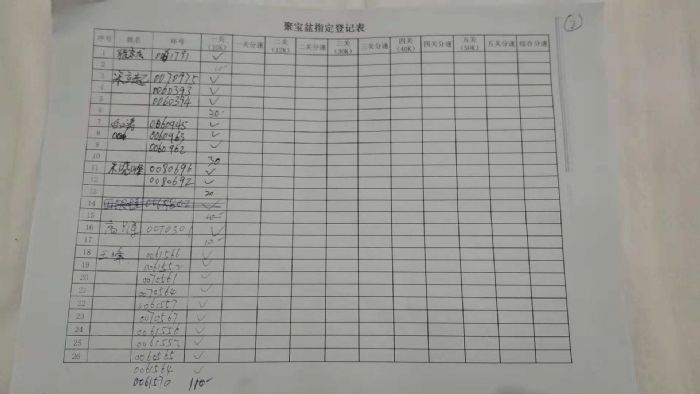 聚宝盆指定登记表
②
序号 姓名 环号 一关(10K) 一关分速 二关(12K) 二关分速 三关(30K) 三关分速 四关(40K) 四关分速 五关(50K) 五关分速 综合分速
1 ✓
2 10-
3 0070975 ✓
4 0060393 ✓
5 0060394 ✓
6 30-
7 0060945 ✓
8 0060963 ✓
9 0060962 ✓
10 30
11 0080696 ✓
12 0080692 ✓
13 20
14 ✓
15
16 0070301 ✓
17 10-
18 0061566 ✓
19 ✓
20 0070561 ✓
21 0070564 ✓
22 0061557 ✓
23 0070567 ✓
24 0061556 ✓
25 ✓
26 0060565 ✓
0061564 ✓
0061570 110-